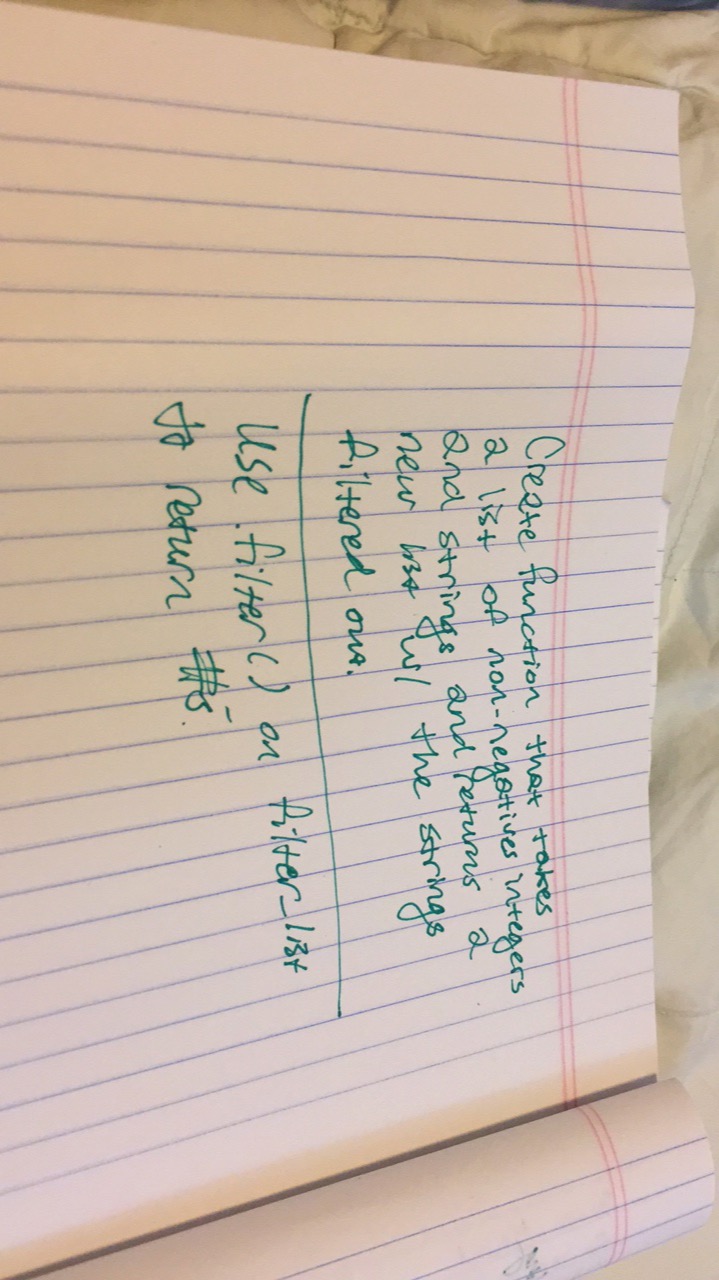 Create function that takes
a list of non-negatives integers
and strings and returns a
new list w/ the strings
filtered out.
Use .filter() on filter_list
to return #s.